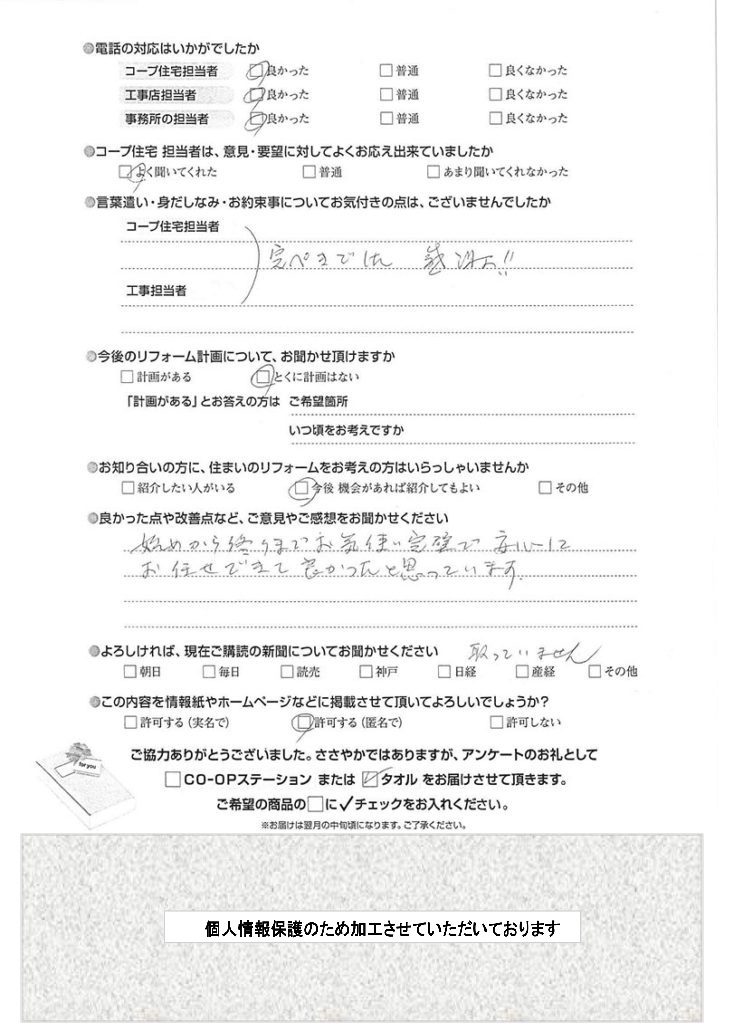 ●電話の対応はいかがでしたか
コープ住宅担当者 □良かった □普通 □良くなかった
工事店担当者 □良かった □普通 □良くなかった
事務所の担当者 □良かった □普通 □良くなかった
●コープ住宅 担当者は、意見・要望に対してよくお応え出来ていましたか
□よく聞いてくれた □普通 □あまり聞いてくれなかった
●言葉遣い・身だしなみ・お約束事についてお気付きの点は、ございませんでしたか
コープ住宅担当者
完ペきでした 感謝!!
工事担当者
●今後のリフォーム計画について、お聞かせ頂けますか
□計画がある □とくに計画はない
「計画がある」とお答えの方は ご希望箇所
いつ頃をお考えですか
●お知り合いの方に、住まいのリフォームをお考えの方はいらっしゃいませんか
□紹介したい人がいる □今後 機会があれば紹介してもよい □その他
●良かった点や改善点など、ご意見やご感想をお聞かせください
始めから終りまでお気使い完璧で 安心して
お任せできて良かったと思っています。
●よろしければ、現在ご購読の新聞についてお聞かせください 取っていません
□朝日 □毎日 □読売 □神戸 □日経 □産経 □その他
●この内容を情報紙やホームページなどに掲載させて頂いてよろしいでしょうか?
□許可する(実名で) □許可する(匿名で) □許可しない
for you
ご協力ありがとうございました。ささやかではありますが、アンケートのお礼として
□CO-OPステーション または ☑タオル をお届けさせて頂きます。
ご希望の商品の□に✓チェックをお入れください。
※お届けは翌月の中旬頃になります。ご了承ください。
個人情報保護のため加工させていただいております